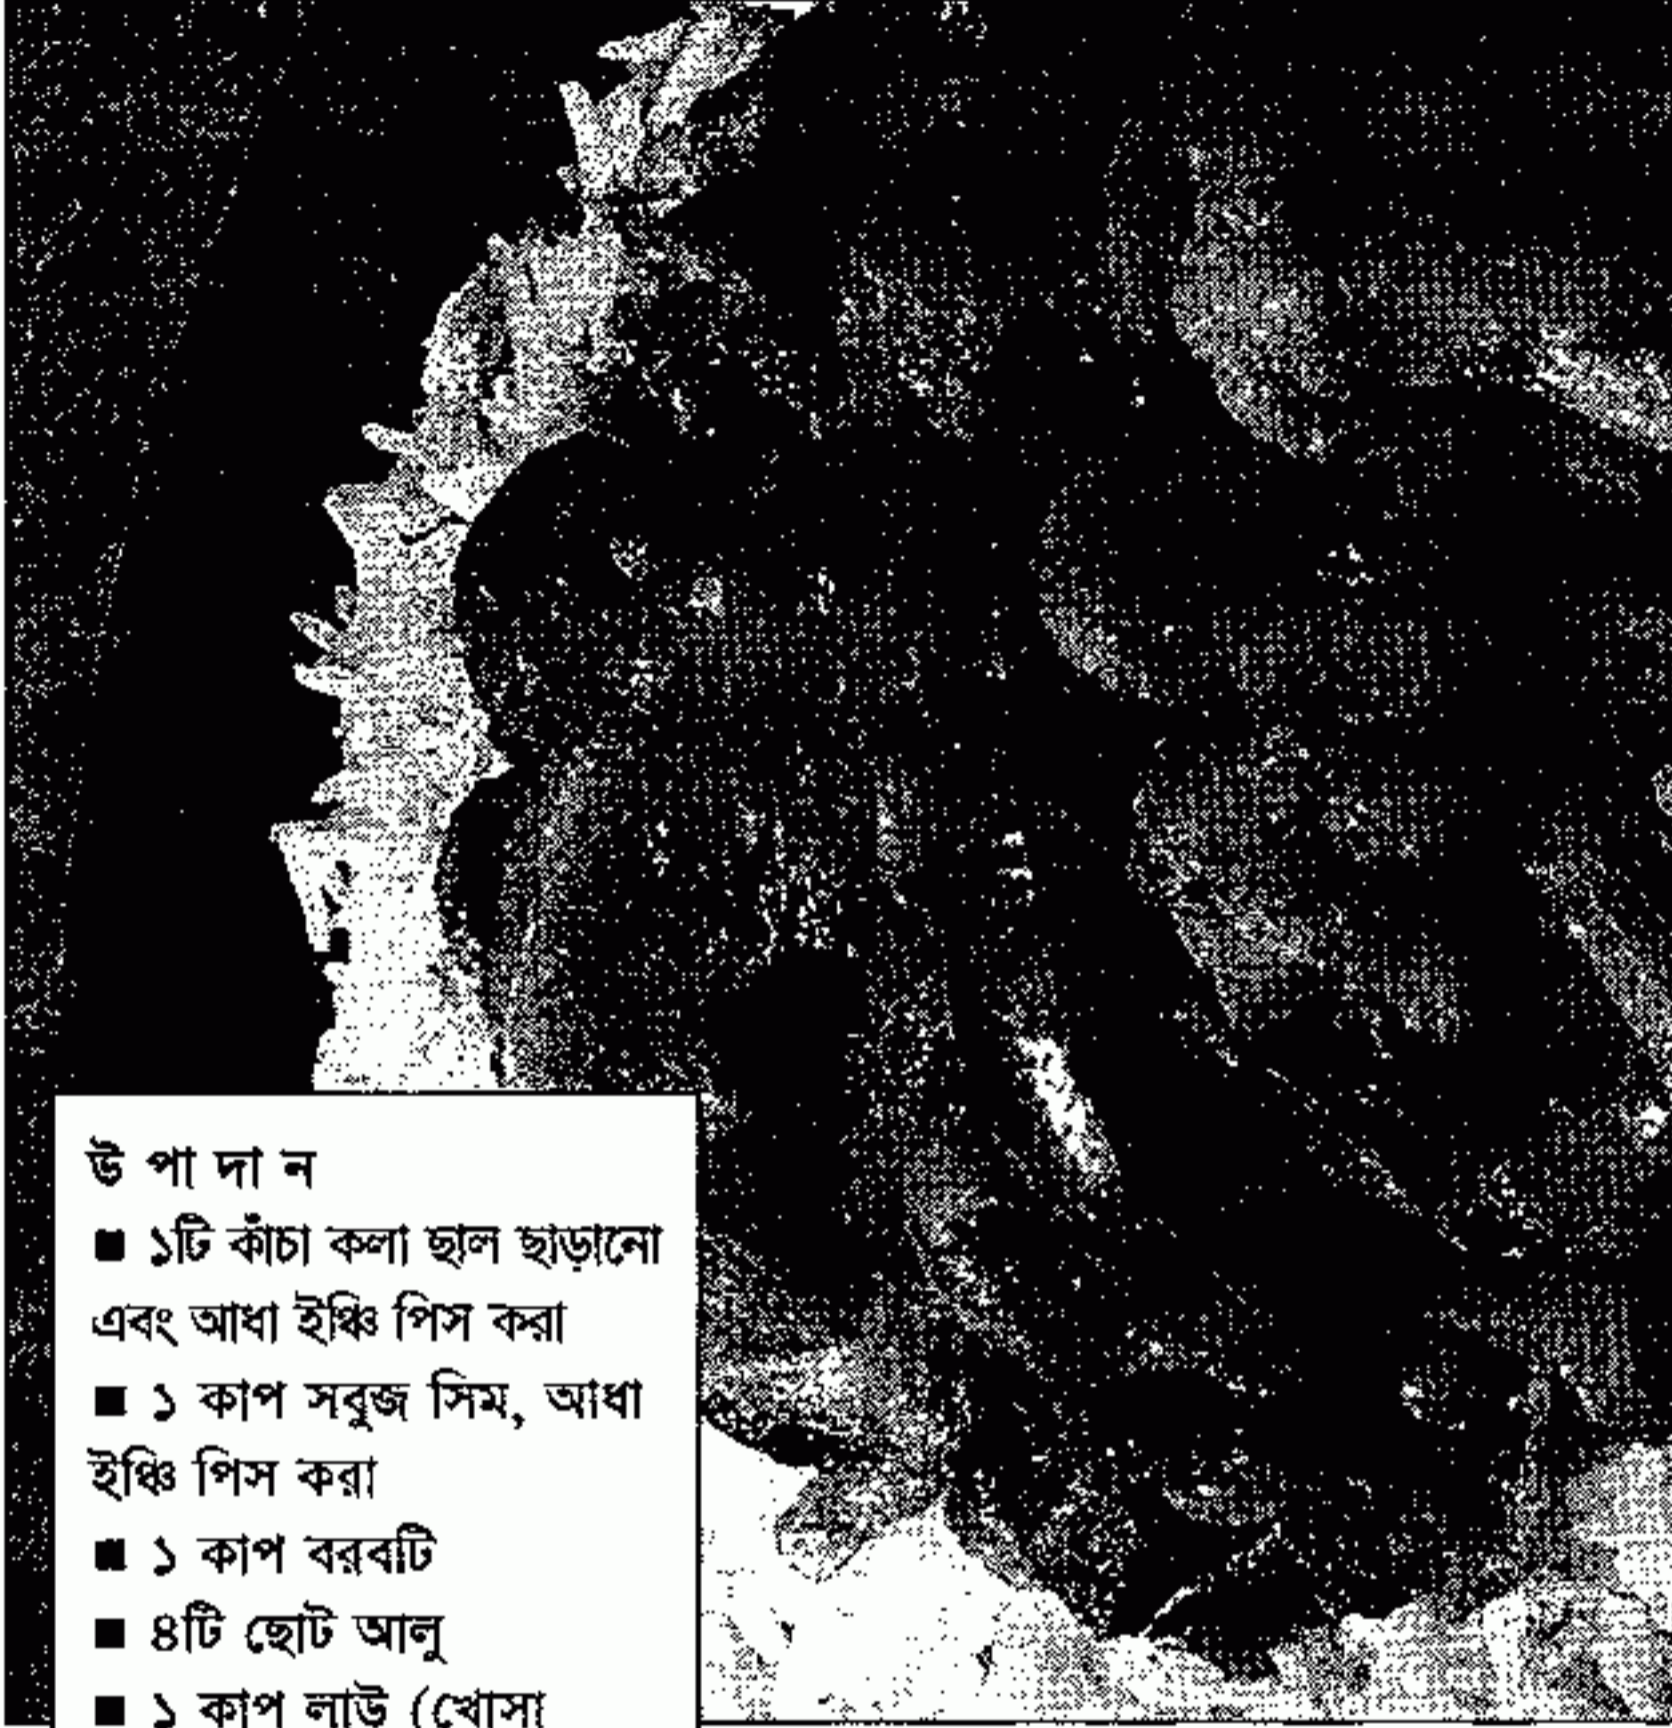 উ পা দা ন
■ ১টি কাঁচা কলা ছাল ছাড়ানো
এবং আধা ইঞ্চি পিস করা
■ ১ কাপ সবুজ সিম, আধা
ইঞ্চি পিস করা
■ ১ কাপ বরবটি
■ ৪টি ছোট আলু
■ ১ কাপ লাউ (খোসা